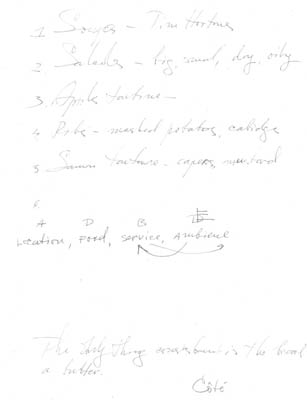 1 Soups – Tim Hortons
2 Salades – big, small, dry, oily
3. Apples tartare –
4. Ribs – mashed potatoes, cabidge
5. Saumn tartare – capers, mustard
6.
A D B E
Location, Food, service, Ambience
The only thing is the bread
a butter.
Côté